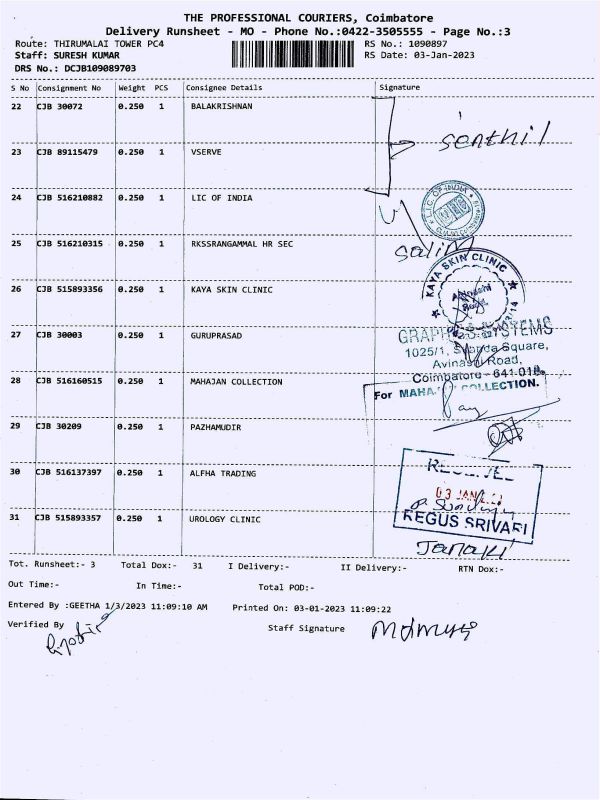 THE PROFESSIONAL COURIERS, Coimbatore
Delivery Runsheet - MO - Phone No.:0422-3505555 - Page No.:3
Route: THIRUMALAI TOWER PC4 RS No.: 1090897
Staff: SURESH KUMAR RS Date: 03-Jan-2023
DRS No.: DCJB109089703
S No Consignment No Weight PCS Consignee Details Signature
22 CJB 30072 0.250 1 BALAKRISHNAN
senthil
23 CJB 89115479 0.250 1 VSERVE
24 CJB 516210882 0.250 1 LIC OF INDIA
L.I.C. OF INDIA
25 CJB 516210315 0.250 1 RKSSRANGAMMAL HR SEC
salim
26 CJB 515893356 0.250 1 KAYA SKIN CLINIC
KAYA SKIN CLINIC
Avinashi
Road
27 CJB 30003 0.250 1 GURUPRASAD
GRAPHICS SYSTEMS
1025/1, Square,
Avinashi Road,
Coimbatore - 641 018.
28 CJB 516160515 0.250 1 MAHAJAN COLLECTION
For MAHAJAN COLLECTION.
29 CJB 30209 0.250 1 PAZHAMUDIR
30 CJB 516137397 0.250 1 ALFHA TRADING
RECEIVED
03 JAN
REGUS SRIVARI
31 CJB 515893357 0.250 1 UROLOGY CLINIC
Janaki
Tot. Runsheet:- 3 Total Dox:- 31 I Delivery:- II Delivery:- RTN Dox:-
Out Time:- In Time:- Total POD:-
Entered By :GEETHA 1/3/2023 11:09:10 AM Printed On: 03-01-2023 11:09:22
Verified By Staff Signature